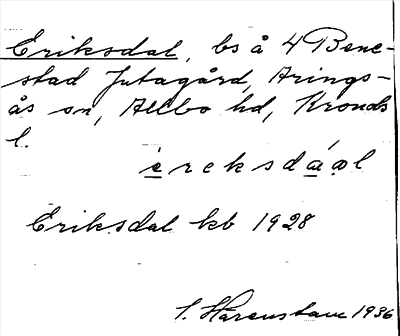 Eriksdal, bs å 4 Bene-
stad Jutagård, Arings-
ås sn, Allbo hd, Kronobs
l.
èreksdáal
Eriksdal kb 1928
S. Härenstam 1936